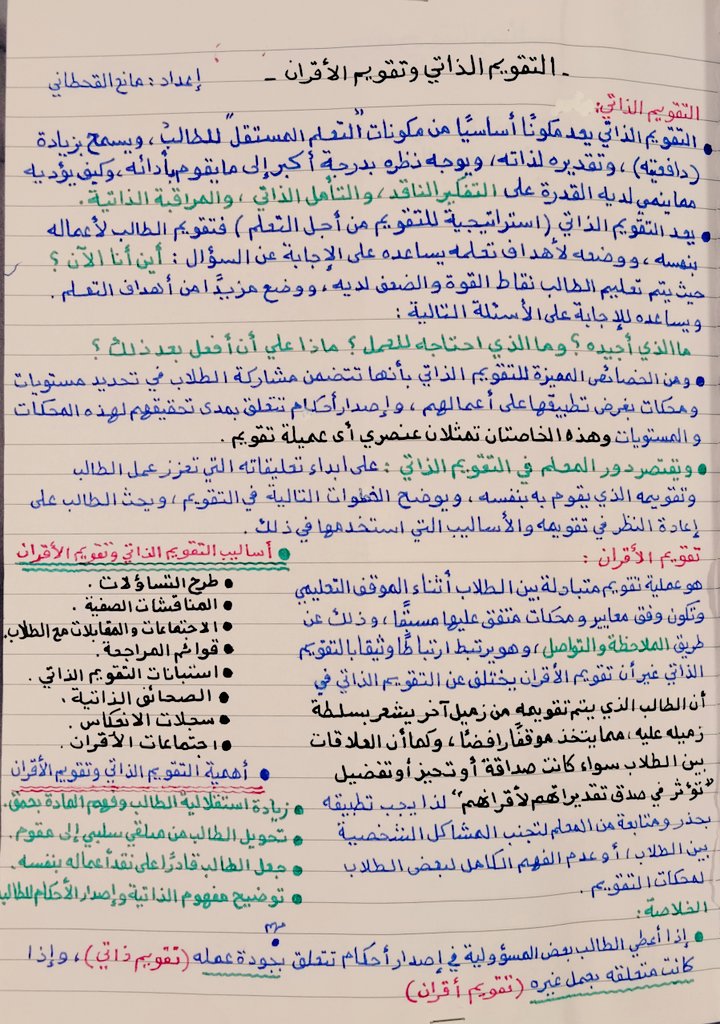 - التقويم الذاتي وتقويم الأقران -
إعداد : مانع القحطاني
التقويم الذاتي:
• التقويم الذاتي يعد مكونًا أساسيًا من مكونات "التعلم المستقل" للطالب، ويسمح بزيادة
(دافعيته)، وتقديره لذاته، ويوجه نظره بدرجة أكبر إلى مايقوم بأدائه، وكيف يؤديه
مما ينمي لديه القدرة على التفكير الناقد، والتأمل الذاتي، والمراقبة الذاتية.
• يعد التقويم الذاتي (استراتيجية للتقويم من أجل التعلم) فتقويم الطالب لأعماله
بنفسه، ووضعه لأهداف تعلمه يساعده على الإجابة عن السؤال : أين أنا الآن ؟
حيث يتم تعليم الطالب نقاط القوة والضعف لديه، ووضع مزيدًا من أهداف التعلم .
ويساعده للإجابة على الأسئلة التالية :
ما الذي أجيده ؟ وما الذي احتاجه للعمل ؟ ماذا علي أن أفعل بعد ذلك ؟
• ومن الخصائص المميزة للتقويم الذاتي بأنها تتضمن مشاركة الطلاب في تحديد مستويات
ومحكات بغرض تطبيقها على أعمالهم، وإصدار أحكام تتعلق بمدى تحقيقهم لهذه المحكات
والمستويات وهذه الخاصتان تمثلان عنصري أى عميلة تقويم .
• ويقتصر دور المعلم في التقويم الذاتي : على ابداء تعليقاته التي تعزز عمل الطالب
وتقويمه الذي يقوم به بنفسه، ويوضح الخطوات التالية في التقويم، ويحث الطالب على
إعادة النظر في تقويمه والأساليب التي استخدمها في ذلك .
تقويم الأقران :
هو عملية تقويم متبادلة بين الطلاب أثناء الموقف التعليمي
وتكون وفق معايير ومحكات متفق عليها مسبقًا، وذلك عن
طريق الملاحظة والتواصل، وهو يرتبط ارتباطًا وثيقا بالتقويم
الذاتي غير أن تقويم الأقران يختلف عن التقويم الذاتي في
أن الطالب الذي يتم تقويمه من زميل آخر يشعر بسلطة
زميله عليه، مما يتخذ موقفًا رافضًا، وكما أن العلاقات
بين الطلاب سواء كانت صداقة أو تحيز أو تفضيل
"تؤثر في صدق تقديراتهم لأقرانهم" لذا يجب تطبيقه
بحذر ومتابعة من المعلم لتجنب المشاكل الشخصية
بين الطلاب، أو عدم الفهم الكامل لبعض الطلاب
لمحكات التقويم .
• أساليب التقويم الذاتي وتقويم الأقران
• طرح التساؤلات .
• المناقشات الصفية .
• الاجتماعات والمقابلات مع الطلاب.
• قوائم المراجعة .
• استبانات التقويم الذاتي .
• الصحائق الذاتية .
• سجلات الانعكاس .
• اجتماعات الأقران .
• أهمية التقويم الذاتي وتقويم الأقران
• زيادة استقلالية الطالب وفهم المادة بعمق.
• تحويل الطالب من متلقي سلبي إلى مقوم.
• جعل الطالب قادرًا على نقد أعماله بنفسه.
• توضيح مفهوم الذاتية وإصدار الأحكام للطالب
الخلاصة :
مهم
• إذا أعطي الطالب بعض المسؤولية في إصدار أحكام تتعلق بجودة عمله (تقويم ذاتي)، وإذا
كانت متعلقه بعمل غيره (تقويم أقران)